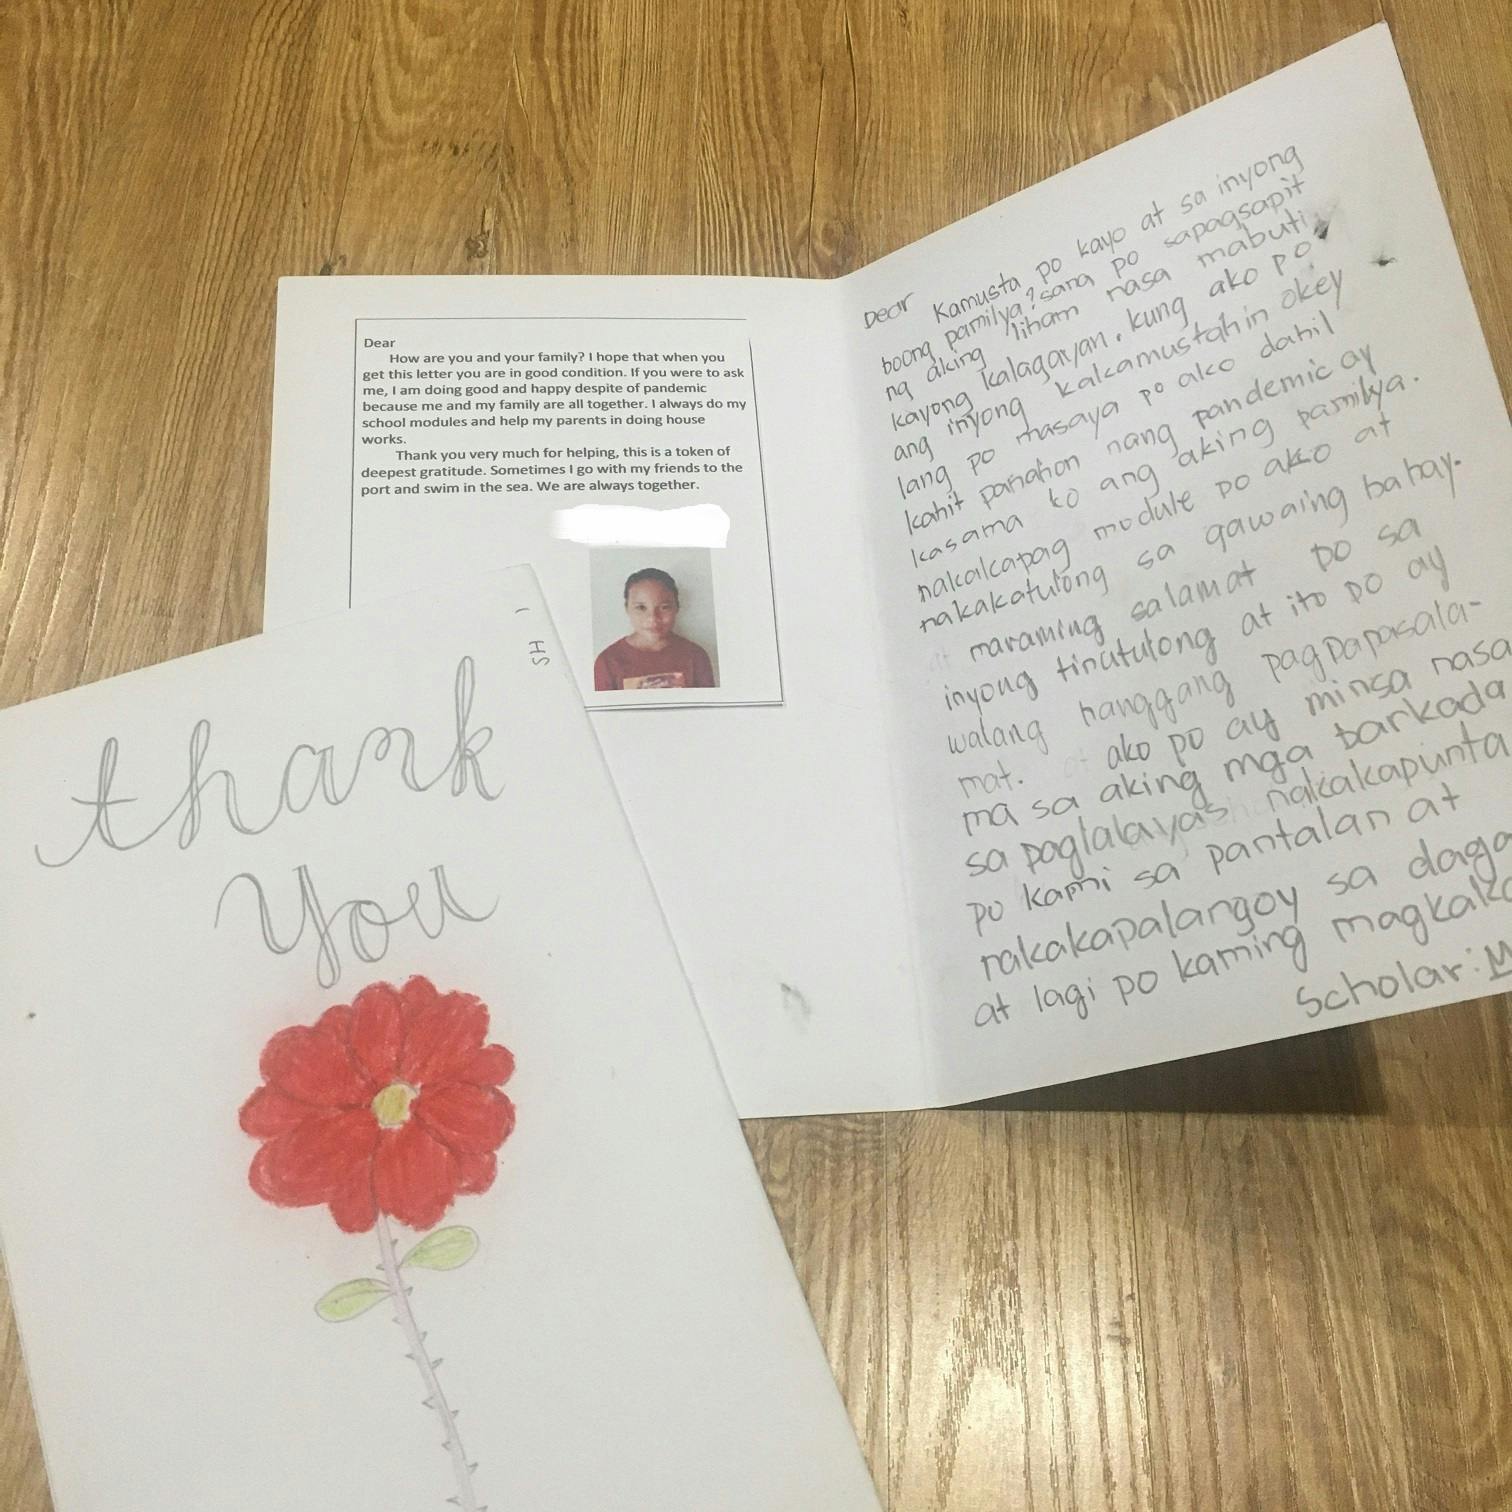 Dear
How are you and your family? I hope that when you
get this letter you are in good condition. If you were to ask
me, I am doing good and happy despite of pandemic
because me and my family are all together. I always do my
school modules and help my parents in doing house
works.
Thank you very much for helping, this is a token of
deepest gratitude. Sometimes I go with my friends to the
port and swim in the sea. We are always together.
Dear Kamusta po kayo at sa inyong
boong pamilya? sana po sapagsapit
ng aking liham nasa mabuti
kayong kalagayan. kung ako po
ang inyong kakamustahin okey
lang po masaya po ako dahil
kahit panahon nang pandemic ay
kasama ko ang aking pamilya.
nakakapag module po ako at
nakakatulong sa gawaing bahay.
maraming salamat po sa
inyong tinutulong at ito po ay
walang hanggang pagpapasala-
mat. ako po ay minsa nasa
ma sa aking mga barkada
sa paglalayas nakakapunta
po kami sa pantalan at
nakakapalangoy sa daga
at lagi po kaming magkaka
Scholar: M
SH
thank
You